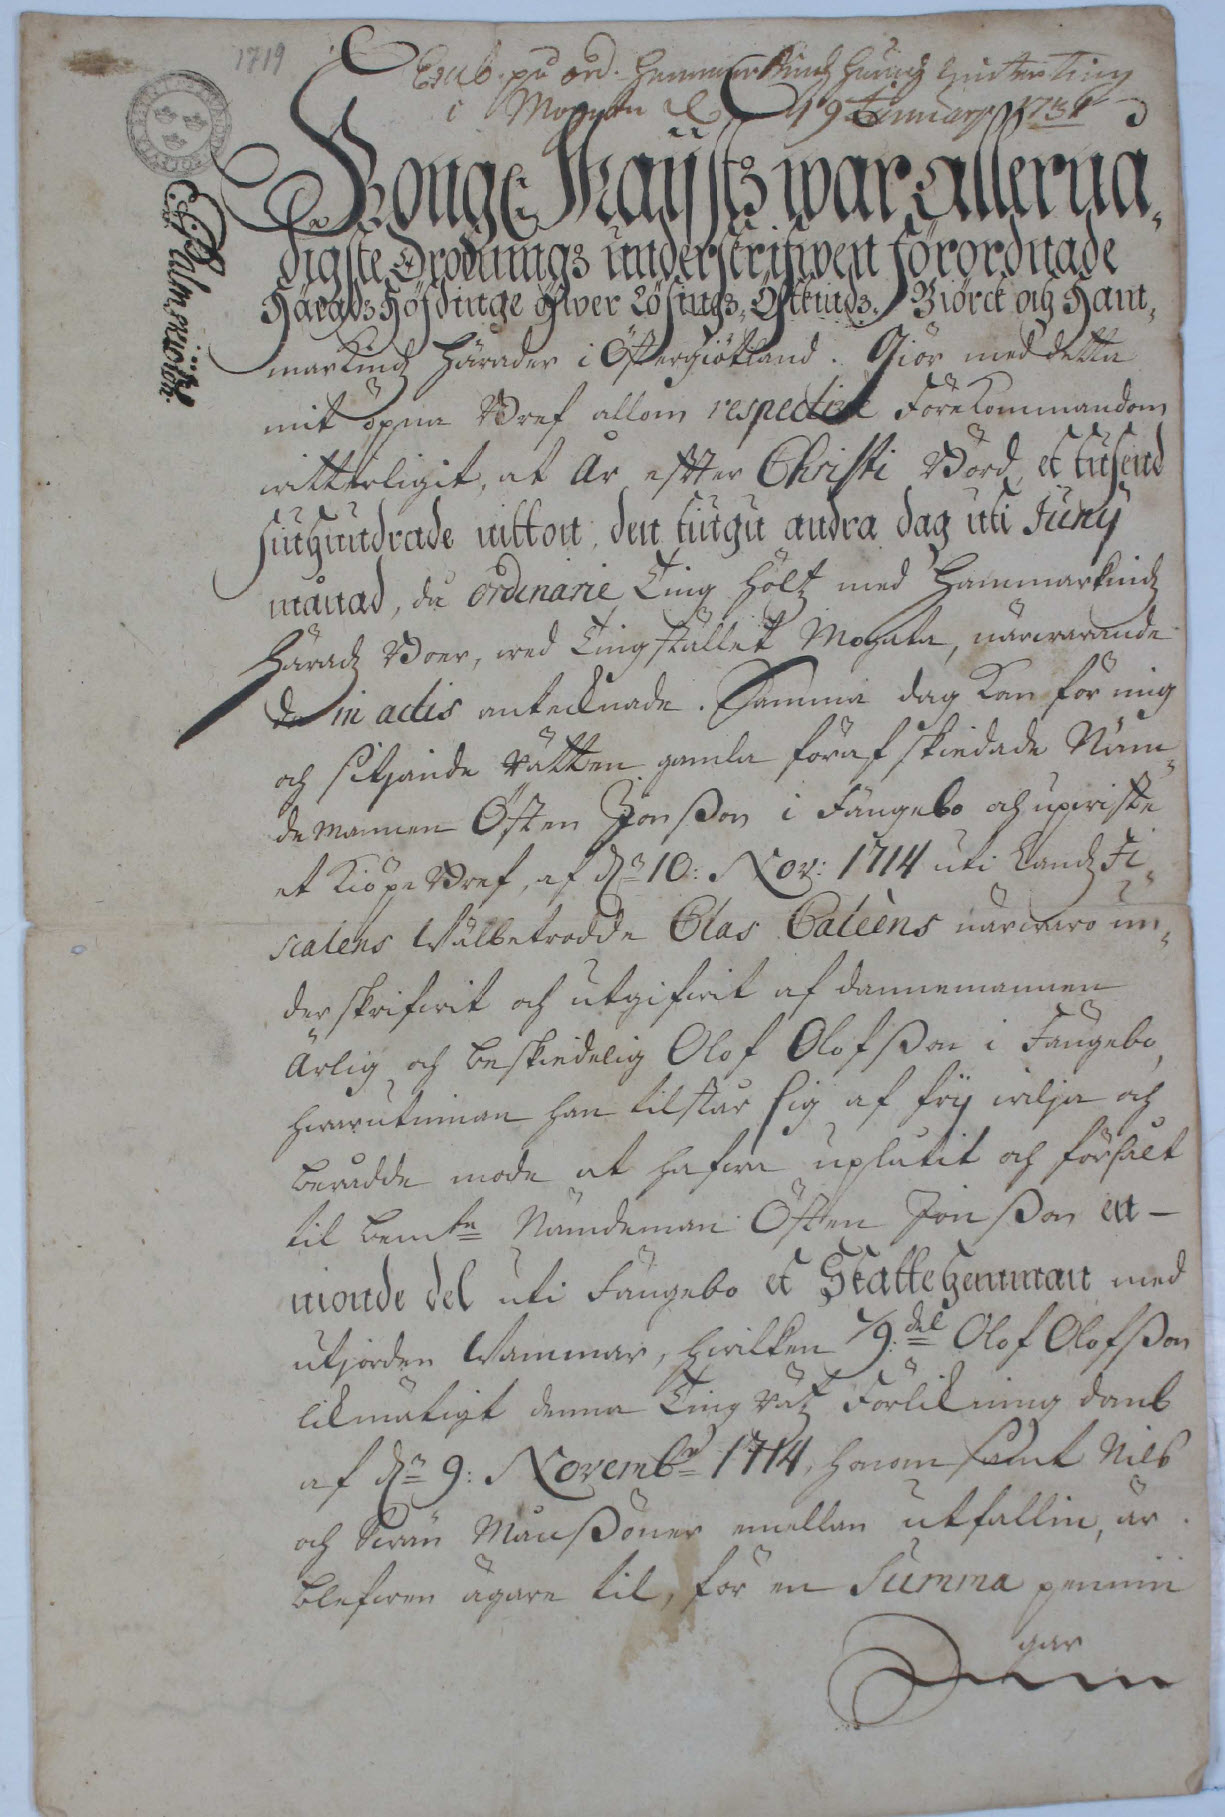 1719
Exhib. på ord. Hammarkindz Häradz winterting
i Mogata d. 19 January 1731
Kongl Maijstz war allernå-
digste Ordnings underskrifwen förordnade
Häradz Höfdinge öfwer Lösings, Östkindz, Biörck och Ham-
markindz Härader i Östergiötland. Giör med detta
mit öpna Bref allom respective Förekommandom
witterligit, at År efter Christi Börd, et tusend
siuhundrade nitton, den tiugu andra dag uti Juny
månad, då ordinarie Ting höltz med Hammarkindz
Häradz Boer, wed Tingstället Mogata, närwarande
de in actis antecknade. Samma dag kom för mig
och sitjande Rätten gamla för afskiedade Näm-
demannen Östen Jonßon i Fångebo och upwiste
et Kiöpe Bref, af dn 10: Nov: 1714 uti Landz Fi-
scalens Wälbetrodde Clas Caleèns närwaro un-
derskrifwit och utgifwit af dannemannen
Ärlig och beskiedelig Olof Olofßon i Fångebo,
hwarutinnan han tilstår sig af frij wilja och
berådde mode at hafwa uplåtit och försält
til bemte Nämdeman Östen Jonßon en
nionde del uti Fångebo et Skattehemman med
utjorden Wammar, hwilken 1/9:del Olof Olofßon
likmätigt denna Ting Rätz Förlikning domb
af dn 9: Novembr 1714, honom samt Nils
och Swän Månßöner emellan utfallin, är
blefwen ägare til, för en Summa pennin
gar
E. Palmskiöld